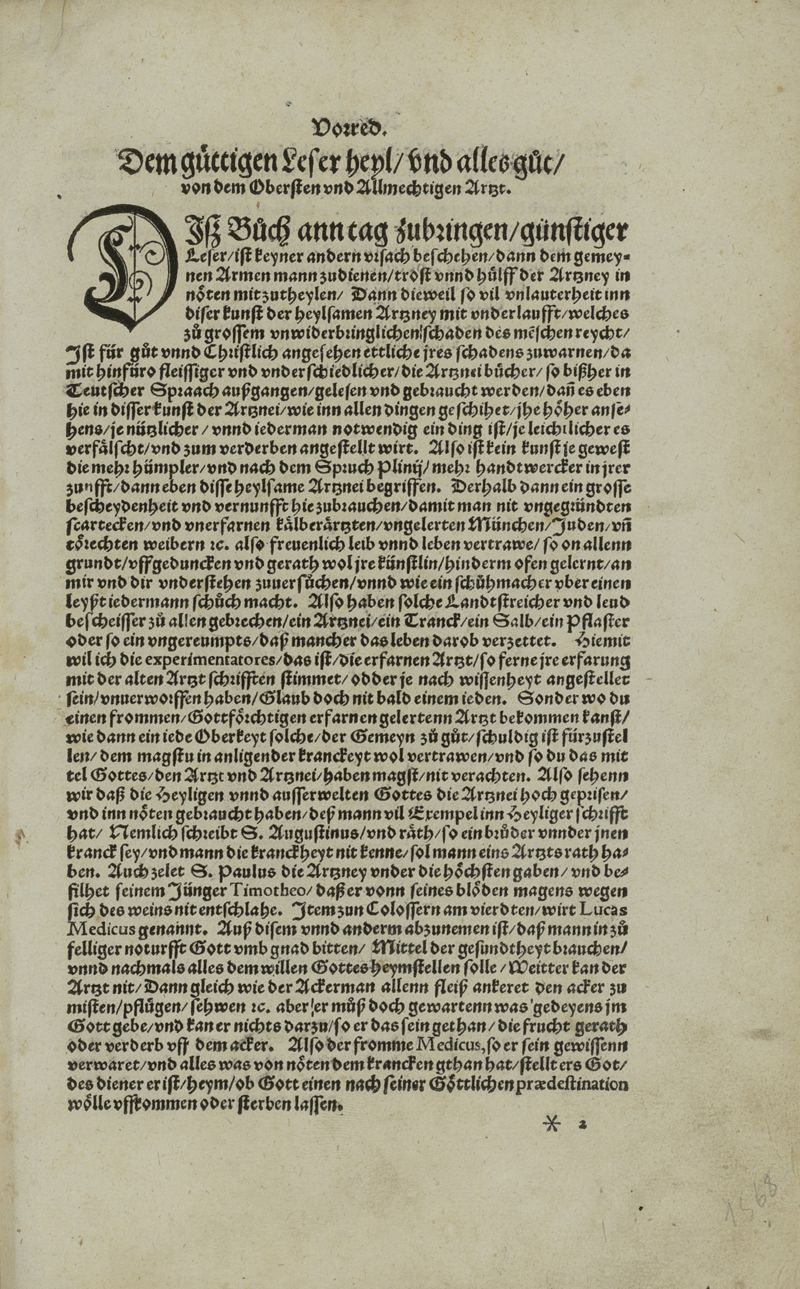 Vorred.
Dem güttigen Leser heyl/ vnd alles gůt/
von dem Obersten vnd Allmechtigen Artzt.
DIß Bůch ann tag zubringen/günstiger
Leser/ist keyner andern vrsach beschehen/dann dem gemey-
nen Armen mann zudienen/trost vnnd hülff der Artzney in
nöten mitzutheylen/ Dann dieweil so vil vnlauterheit inn
diser kunst der heylsamen Artzney mit vnderlaufft/welches
zů grossem vnwiderbringlichen schaden des mẽschen reycht/
Ist für gůt vnnd Christlich angesehen ettliche jres schadens zuwarnen/da
mit hinfüro fleissiger vnd vnderschiedlicher/die Artznei bücher/so bißher in
Teutscher Spraach außgangen/gelesen vnd gebraucht werden/dañ es eben
hie in disser kunst der Artznei/wie inn allen dingen geschihet/jhe höher anse-
hens/je nützlicher/vnnd iederman notwendig ein ding ist/je leichtlicher es
verfälscht/vnd zum verderben angestellt wirt. Also ist kein kunst je gewest
die mehr hümpler/vnd nach dem Spruch Plinij/mehr handtwercker in jrer
zunfft/dann eben disse heylsame Artznei begriffen. Derhalb dann ein grosse
bescheydenheit vnd vernunfft hie zubrauchen/damit man nit vngegründten
scartecken/vnd vnerfarnen kälberärtzten/vngelerten München/Juden/vñ
törechten weibern ꝛc. also freuenlich leib vnnd leben vertrawe/so on allenn
grundt/vffgeduncken vnd gerath wol jre künstlin/hinderm ofen gelernt/an
mir vnd dir vnderstehen zuuersůchen/vnnd wie ein schůhmacher vber einen
leyßt iedermann schůch macht. Also haben solche Landtstreicher vnd leud
bescheisser zů allen gebrechen/ein Artznei/ein Tranck/ein Salb/ein Pflaster
oder so ein vngereumpts/daß mancher das leben darob verzettet. Hiemit
wil ich die experimentatores/das ist/die erfarnen Artzt/so ferne jre erfarung
mit der alten Artzt schrifften stimmet/odder je nach wissenheyt angestellet
sein/vnuerworffen haben/Glaub doch nit bald einem ieden. Sonder wo du
einen frommen/Gottförchtigen erfarnen gelertenn Artzt bekommen kanst/
wie dann ein iede Oberkeyt solche/der Gemeyn zů gůt/schuldig ist fürzustel
len/dem magstu in anligender kranckeyt wol vertrawen/vnd so du das mit
tel Gottes/den Artzt vnd Artznei/haben magst/nit verachten. Also sehenn
wir daß die Heyligen vnnd ausserwelten Gottes die Artznei hoch geprisen/
vnd inn nöten gebraucht haben/deß mann vil Exempel inn Heyliger schrifft
hat/ Nemlich schreibt S. Augustinus/vnd räth/so ein brůder vnnder jnen
kranck sey/vnd mann die kranckheyt nit kenne/sol mann eins Artzts rath ha-
ben. Auch zelet S. Paulus die Artzney vnder die höchsten gaben/vnd be-
filhet seinem Jünger Timotheo/daß er vonn seines blöden magens wegen
sich des weins nit entschlahe. Item zun Colossern am vierdten/wirt Lucas
Medicus genannt. Auß disem vnnd anderm abzunemen ist/daß mann in zů
felliger noturfft Gott vmb gnad bitten/ Mittel der gesundtheyt brauchen/
vnnd nachmals alles dem willen Gottes heymstellen solle/Weitter kan der
Artzt nit/Dann gleich wie der Ackerman allenn fleiß ankeret den acker zu
misten/pflügen/sehwen ꝛc. aber er můß doch gewartenn was gedeyens jm
Gott gebe/vnd kan er nichts darzu/so er das sein gethan/die frucht gerath
oder verderb vff dem acker. Also der fromme Medicus, so er sein gewissenn
verwaret/vnd alles was von nöten dem krancken gthan hat/stellt ers Got/
des diener er ist/heym/ob Gott einen nach seiner Göttlichen prædestination
wölle vffkommen oder sterben lassen.
* 2
1568